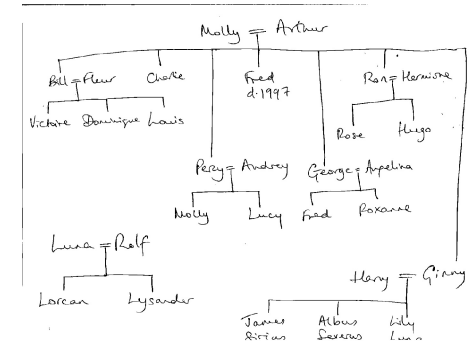 Molly = Arthur
Bill = Fleur Charlie Fred Ron = Hermione
d. 1997
Victoire Dominique Louis
Rose Hugo
Percy = Audrey George = Angelina
Molly Lucy Fred Roxanne
Luna = Rolf
Lorcan Lysander
Harry = Ginny
James Albus Lily
Sirius Severus Luna